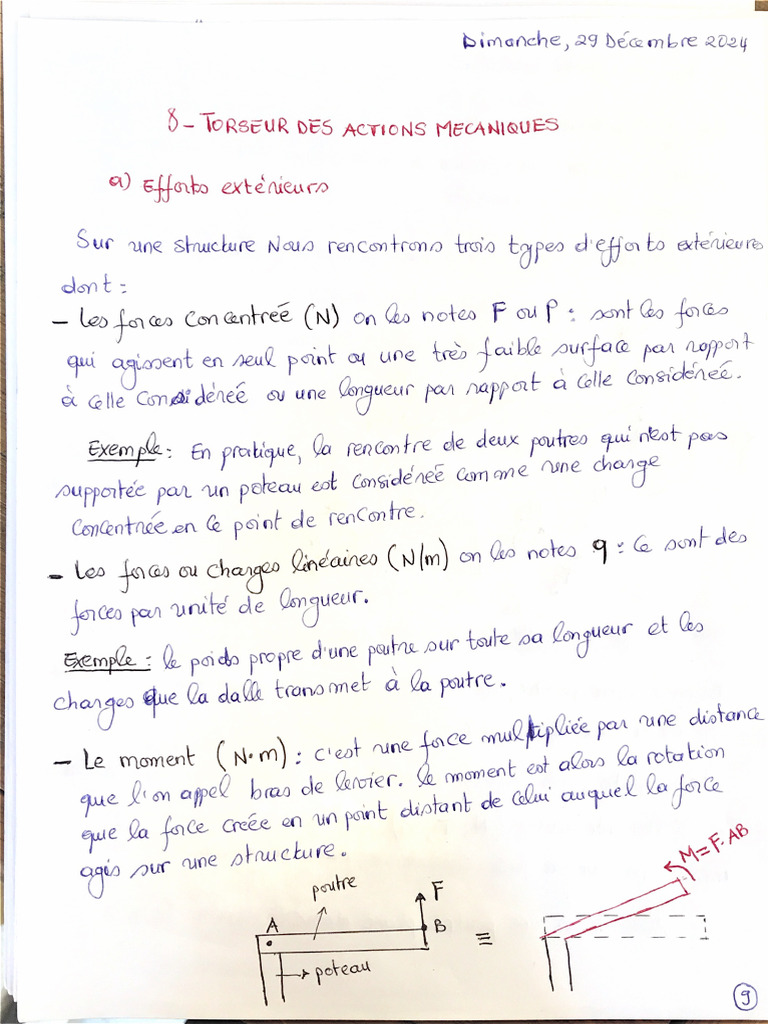 Dimanche, 29 Décembre 2024
8 - TORSEUR DES ACTIONS MECANIQUES
a) Efforts extérieurs
Sur une structure Nous rencontrons trois types d'efforts extérieurs
dont :
- Les forces concentréé (N) on les notes F ou P : sont les forces
qui agissent en seul point ou une très faible surface par rapport
à celle considéréé ou une longueur par rapport à celle considéréé.
Exemple : En pratique, la rencontre de deux poutres qui n'est pas
supportée par un poteau est considéréé comme une charge
concentrée en ce point de rencontre.
- Les forces ou charges linéaires (N/m) on les notes q : Ce sont des
forces par unité de longueur.
Exemple : le poids propre d'une poutre sur toute sa longueur et les
charges que la dalle transmet à la poutre.
- Le moment (N.m) : c'est une force multipliée par une distance
que l'on appel bras de levier. le moment est alors la rotation
que la force créée en un point distant de celui auquel la force
agis sur une structure.
M = F. AB
poutre
F
A
B
≡
poteau
9